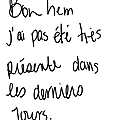 Bon hem
j'ai pas été très
présente dans
les derniers
Jours.